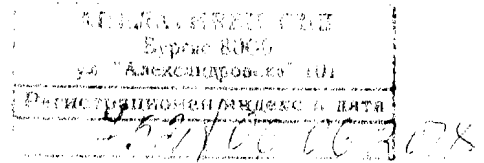 АПЕЛАТИВЕН СЪД
Бургас 8000
ул. "Александровска" 101
Регистрационен индекс и дата